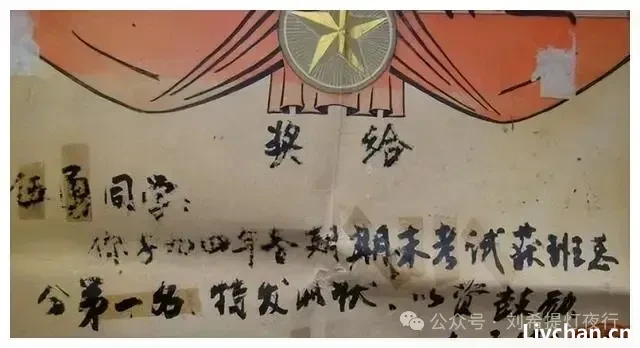 奖给
伍勇同学:
你于九四年春期期末考试获班总
分第一名,特发此状,以资鼓励
公众号·刘希提灯夜行
Livchan.cn